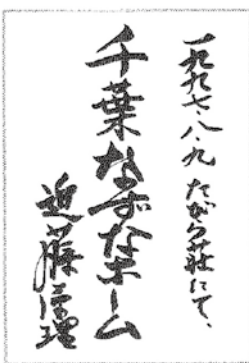 一九九七・八・九 たがら荘にて、
千葉なずなホーム
近藤原理